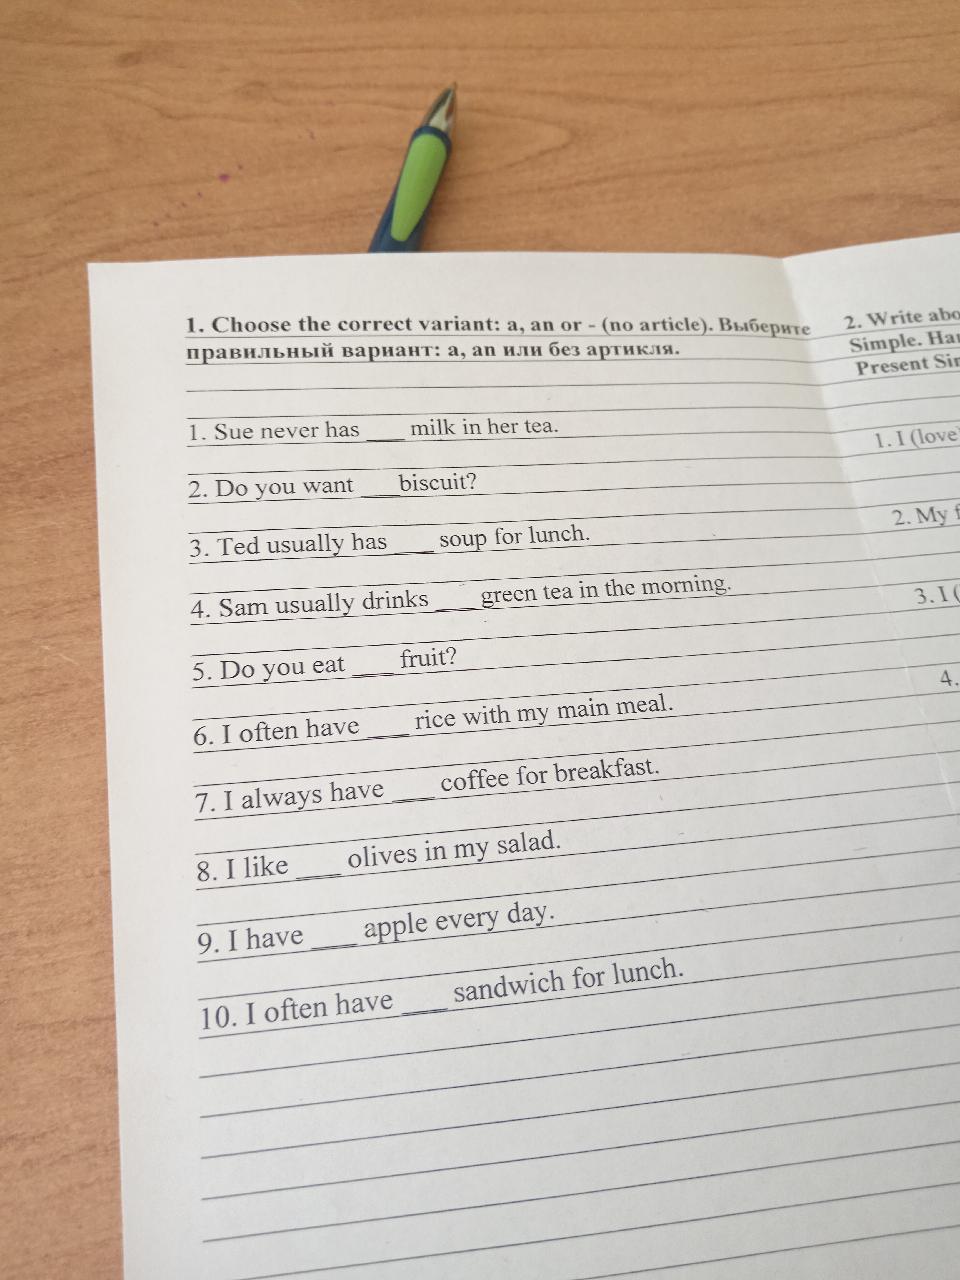 1. Choose the correct variant: a, an or - (no article). Выберите
правильный вариант: a, an или без артикля.
1. Sue never has ___ milk in her tea.
2. Do you want ___ biscuit?
3. Ted usually has ___ soup for lunch.
4. Sam usually drinks ___ green tea in the morning.
5. Do you eat ___ fruit?
6. I often have ___ rice with my main meal.
7. I always have ___ coffee for breakfast.
8. I like ___ olives in my salad.
9. I have ___ apple every day.
10. I often have ___ sandwich for lunch.
2. Write
Simple.
Present
1. I (love)
2. My
3. I (
4.